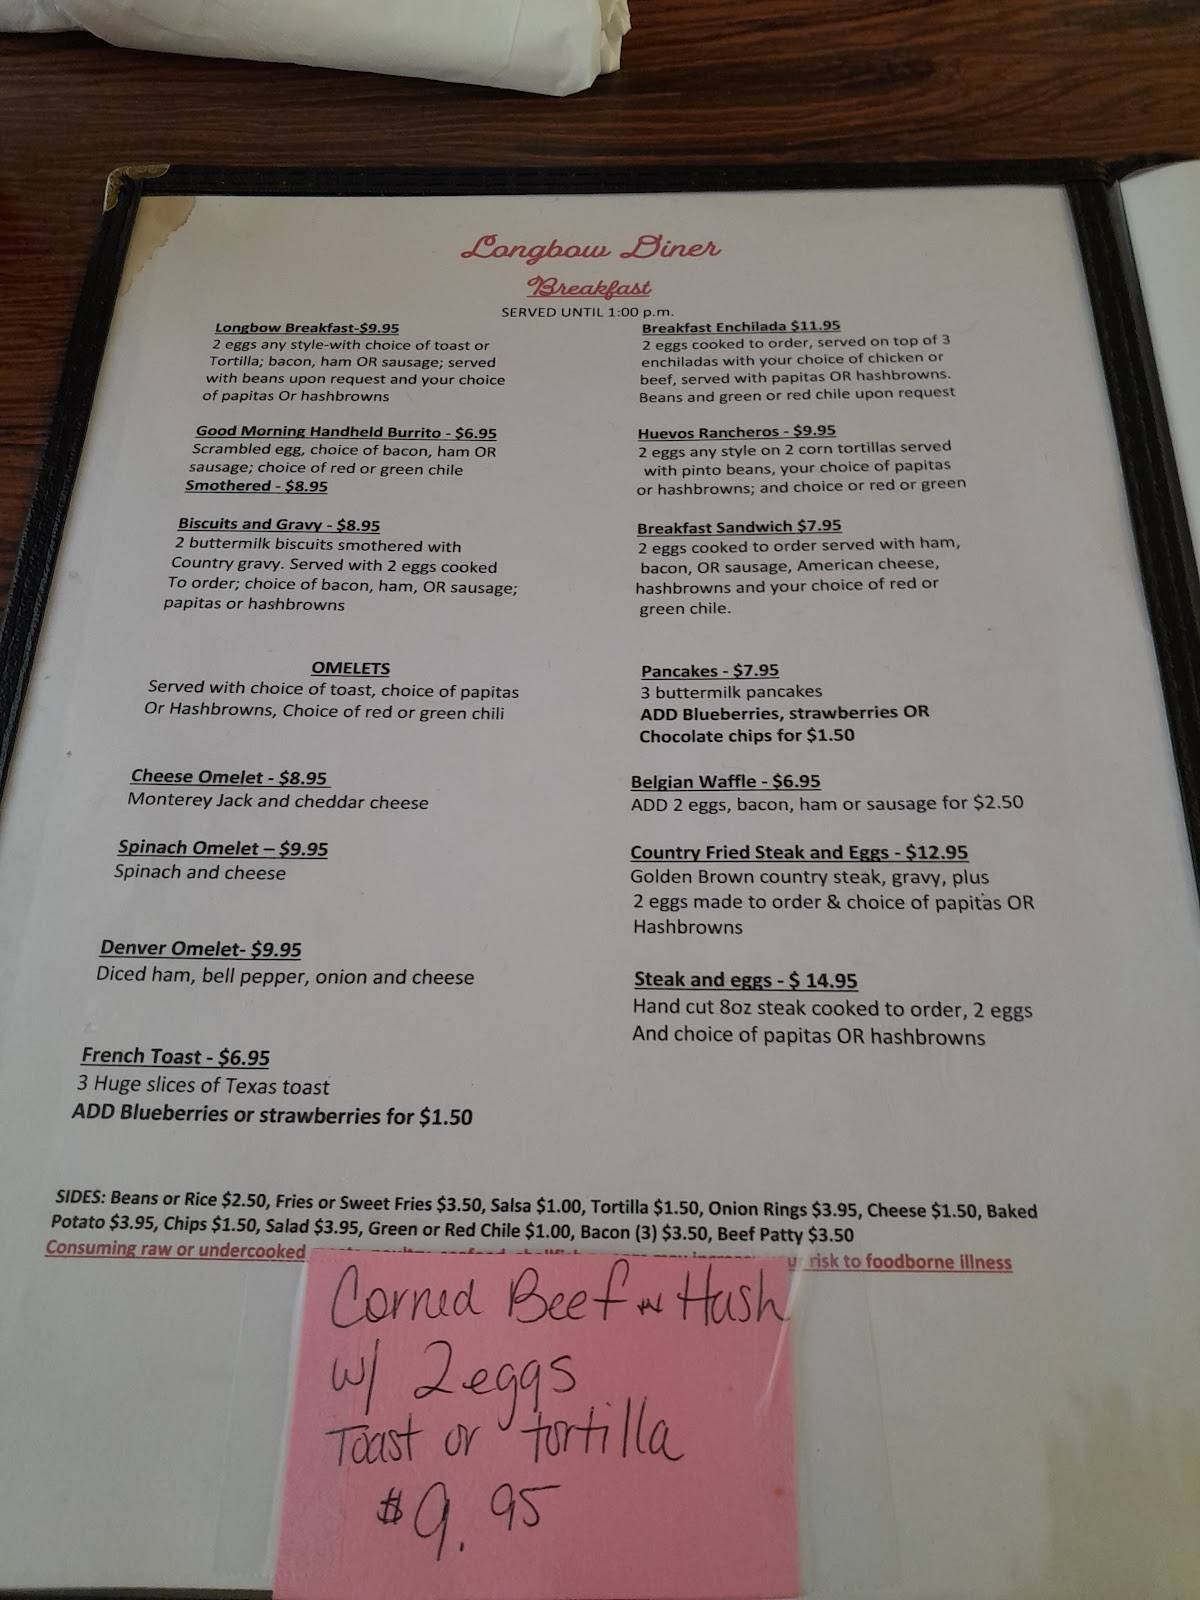 Longbow Diner
Breakfast
SERVED UNTIL 1:00 p.m.
Longbow Breakfast-$9.95
2 eggs any style-with choice of toast or
Tortilla; bacon, ham OR sausage; served
with beans upon request and your choice
of papitas Or hashbrowns
Good Morning Handheld Burrito - $6.95
Scrambled egg, choice of bacon, ham OR
sausage; choice of red or green chile
Smothered - $8.95
Biscuits and Gravy - $8.95
2 buttermilk biscuits smothered with
Country gravy. Served with 2 eggs cooked
To order; choice of bacon, ham, OR sausage;
papitas or hashbrowns
OMELETS
Served with choice of toast, choice of papitas
Or Hashbrowns, Choice of red or green chili
Cheese Omelet - $8.95
Monterey Jack and cheddar cheese
Spinach Omelet – $9.95
Spinach and cheese
Denver Omelet- $9.95
Diced ham, bell pepper, onion and cheese
French Toast - $6.95
3 Huge slices of Texas toast
ADD Blueberries or strawberries for $1.50
Breakfast Enchilada $11.95
2 eggs cooked to order, served on top of 3
enchiladas with your choice of chicken or
beef, served with papitas OR hashbrowns.
Beans and green or red chile upon request
Huevos Rancheros - $9.95
2 eggs any style on 2 corn tortillas served
with pinto beans, your choice of papitas
or hashbrowns; and choice or red or green
Breakfast Sandwich $7.95
2 eggs cooked to order served with ham,
bacon, OR sausage, American cheese,
hashbrowns and your choice of red or
green chile.
Pancakes - $7.95
3 buttermilk pancakes
ADD Blueberries, strawberries OR
Chocolate chips for $1.50
Belgian Waffle - $6.95
ADD 2 eggs, bacon, ham or sausage for $2.50
Country Fried Steak and Eggs - $12.95
Golden Brown country steak, gravy, plus
2 eggs made to order & choice of papitas OR
Hashbrowns
Steak and eggs - $ 14.95
Hand cut 8oz steak cooked to order, 2 eggs
And choice of papitas OR hashbrowns
SIDES: Beans or Rice $2.50, Fries or Sweet Fries $3.50, Salsa $1.00, Tortilla $1.50, Onion Rings $3.95, Cheese $1.50, Baked
Potato $3.95, Chips $1.50, Salad $3.95, Green or Red Chile $1.00, Bacon (3) $3.50, Beef Patty $3.50
Consuming raw or undercooked risk to foodborne illness
Corned Beef Hash
w/ 2 eggs
Toast or tortilla
$9.95